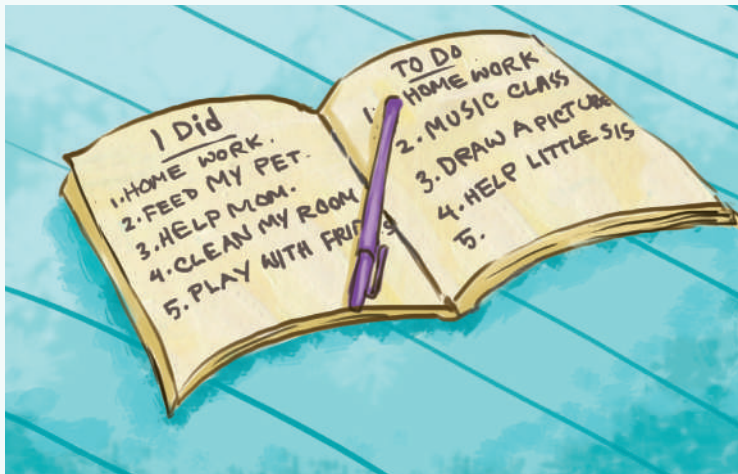 I Did
1. HOME WORK.
2. FEED MY PET.
3. HELP MOM.
4. CLEAN MY ROOM
5. PLAY WITH FRIENDS
TO DO
1. HOME WORK
2. MUSIC CLASS
3. DRAW A PICTURE
4. HELP LITTLE SIS
5.